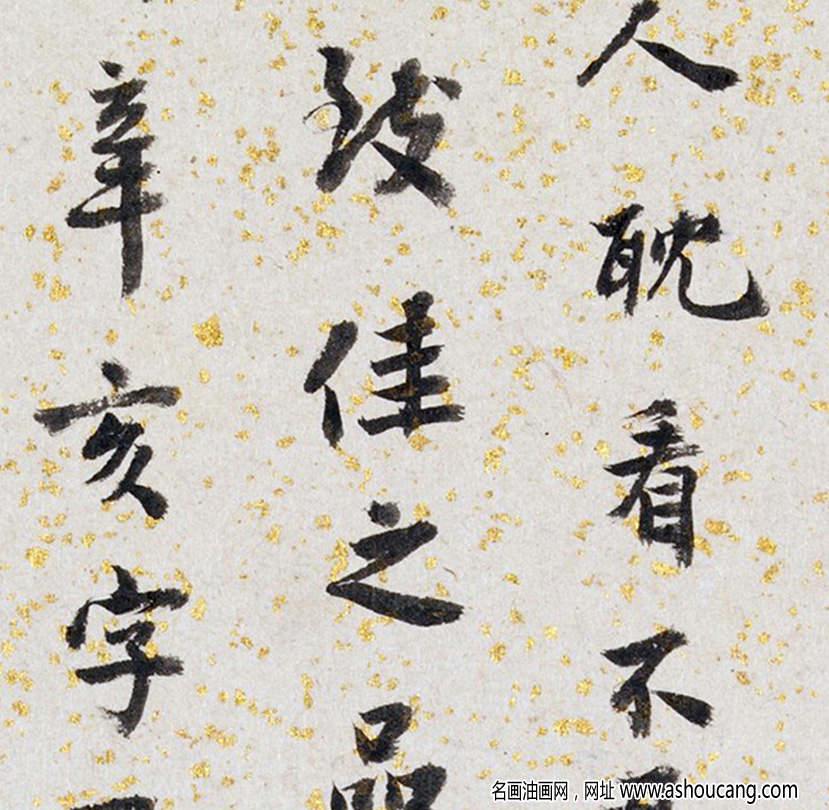 人耽看不
致佳之品
辛亥字
名画油画网，网址 www.ashoucang.com